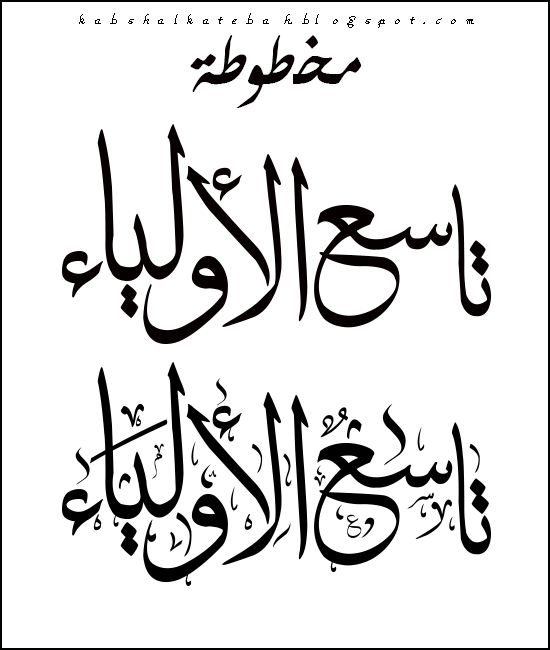 kabshalkatebah.blogspot.com
مخطوطة
تاسع الأولياء
تاسعُ الأَولِيَاء